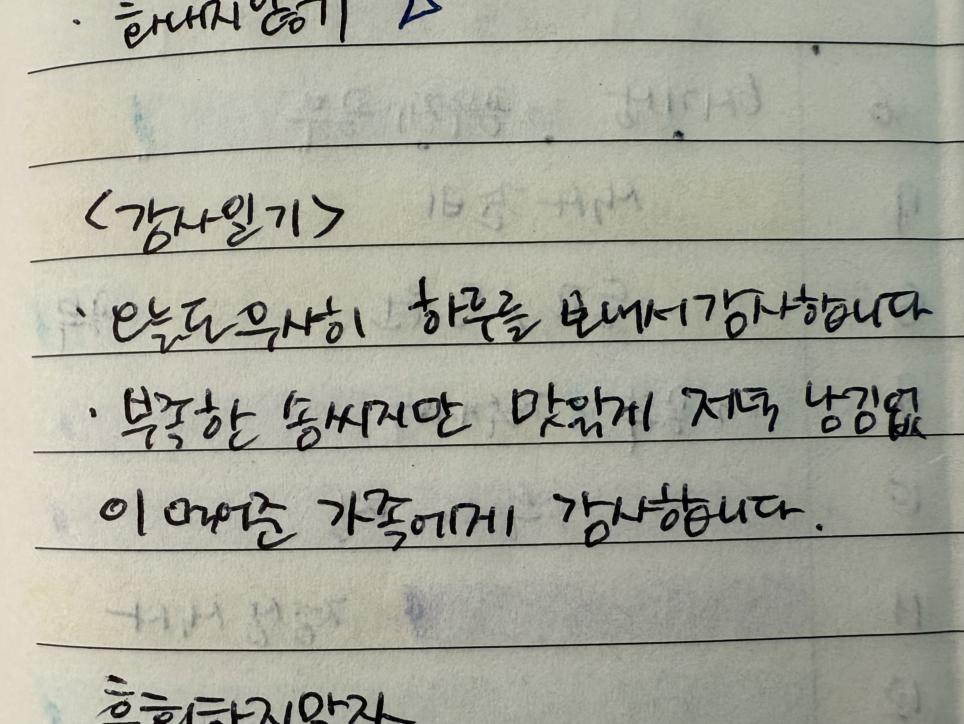 · 화내지 않기
<감사일기>
· 오늘도 무사히 하루를 보내서 감사합니다
· 부족한 솜씨지만 맛있게 저녁 남김없
이 먹어준 가족에게 감사합니다.
후회하지말자